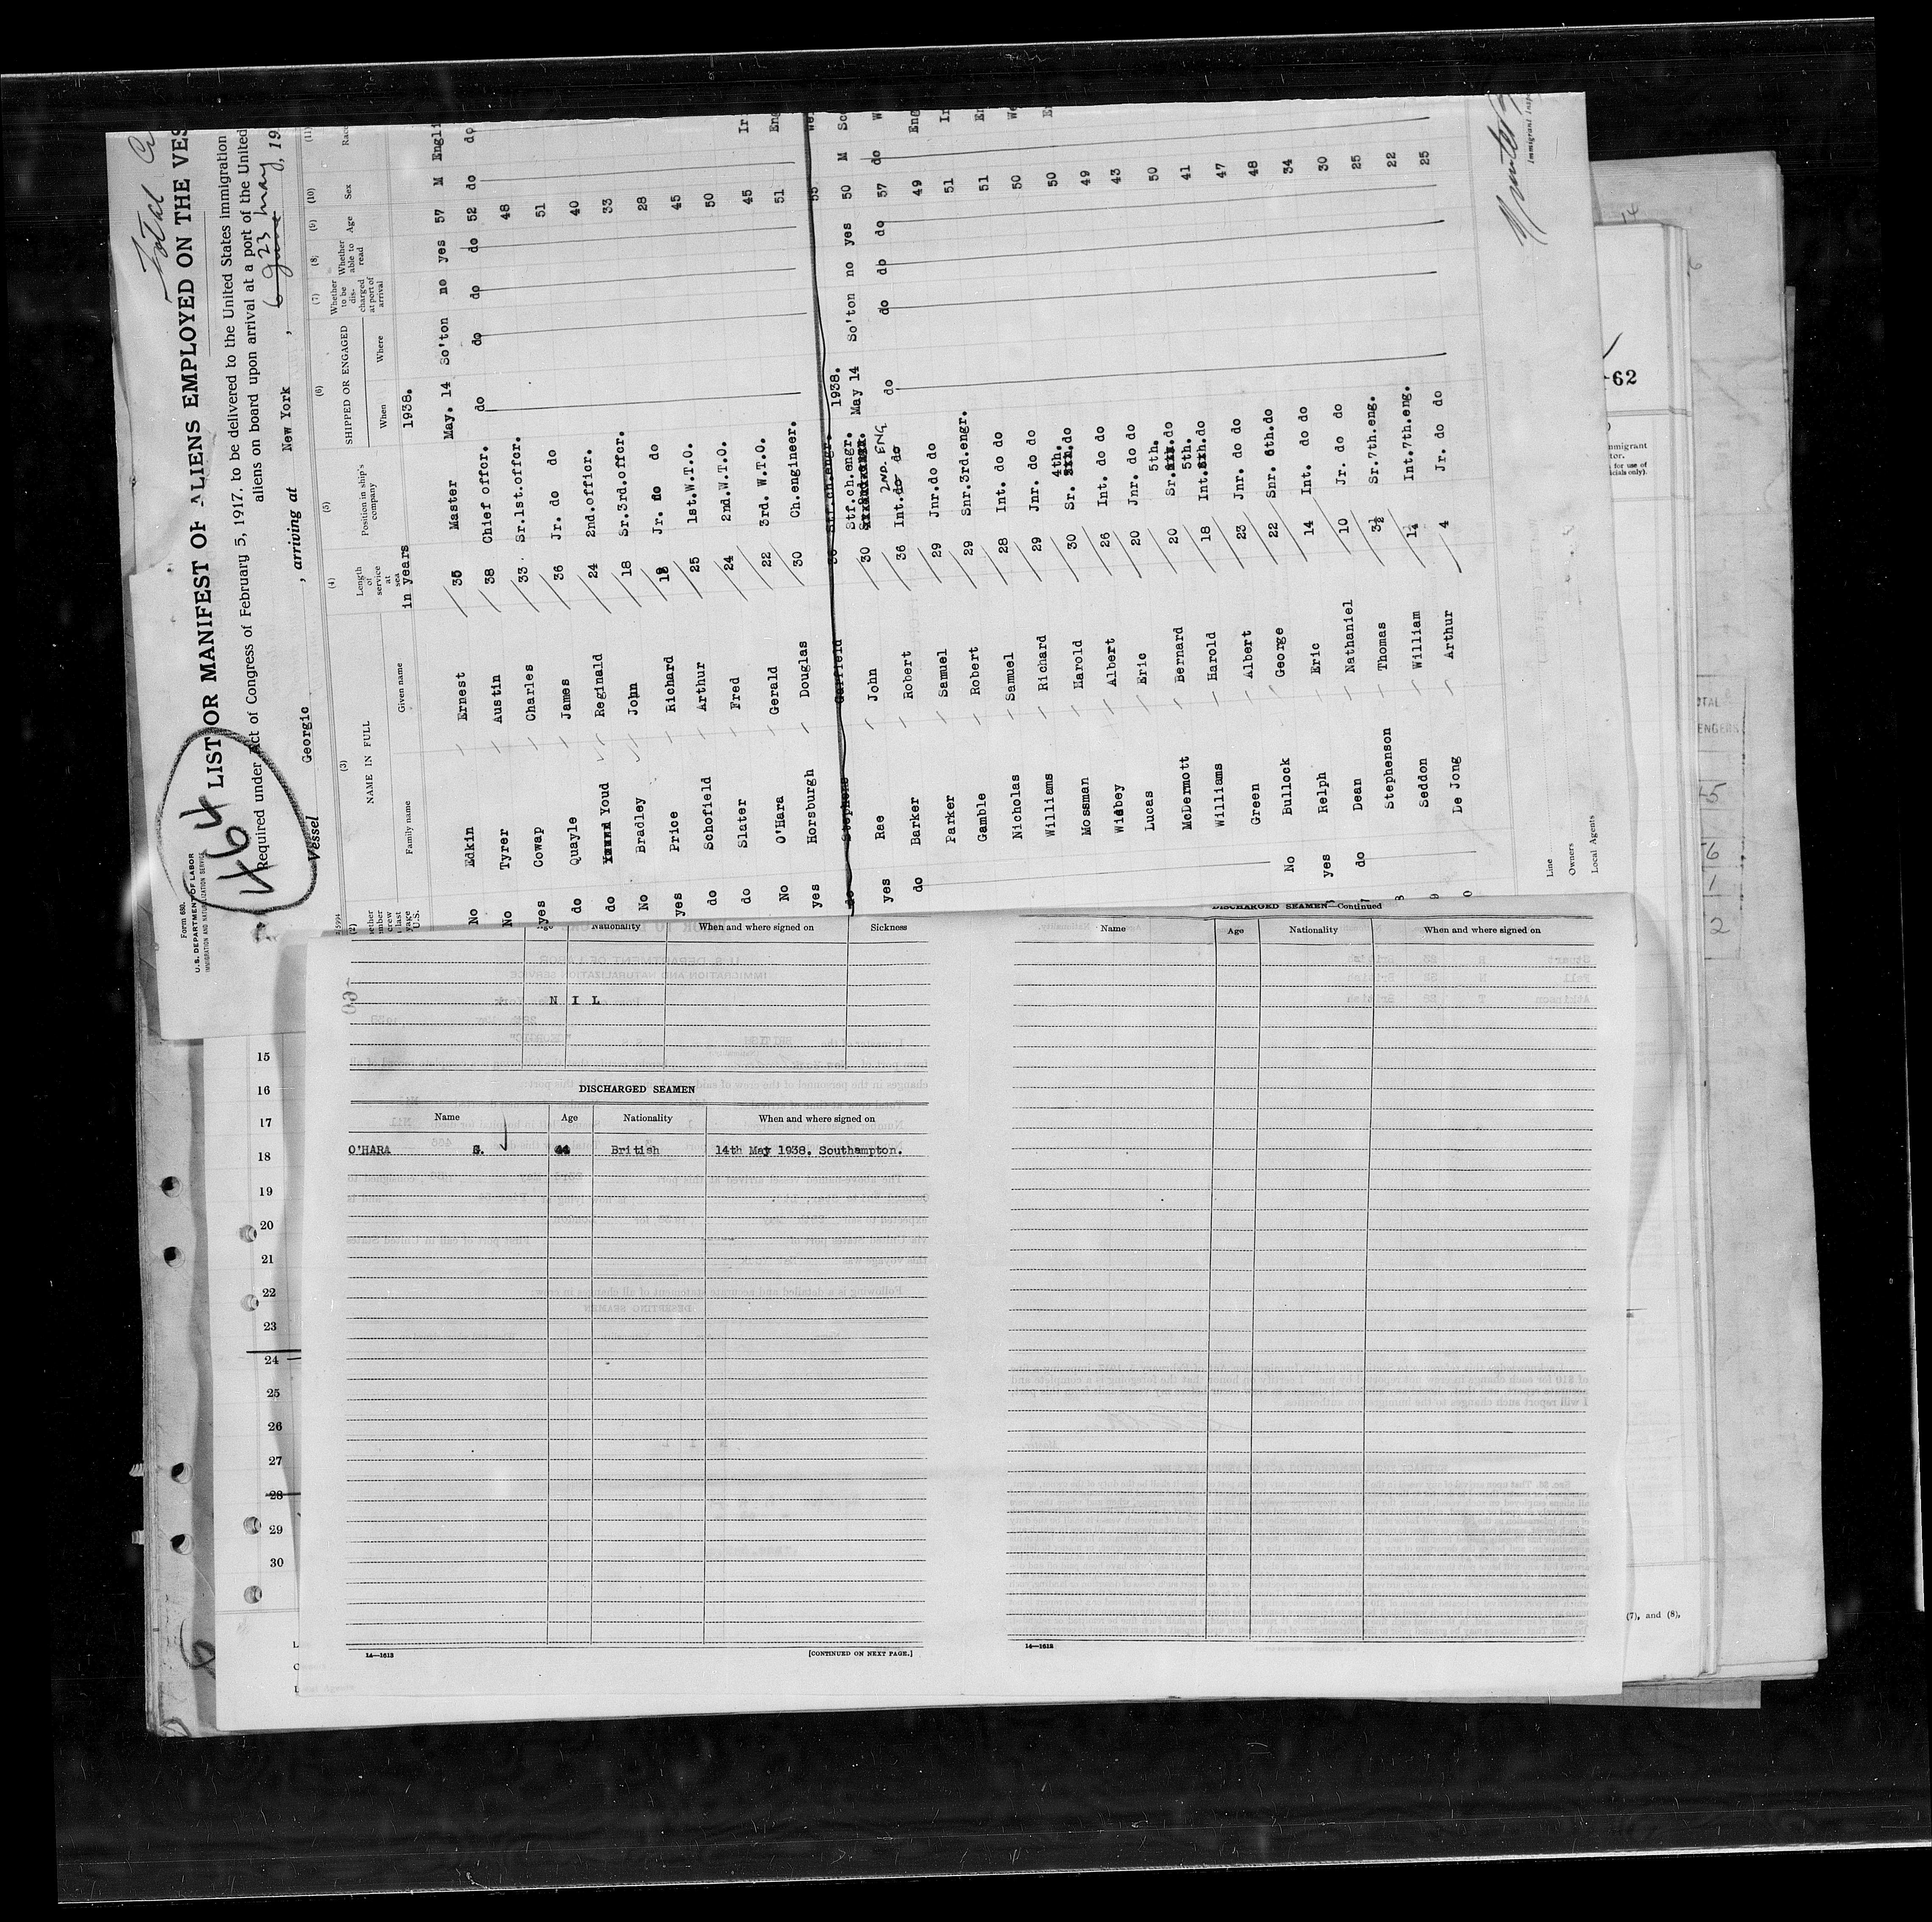 Total
Form 680.
U. S. DEPARTMENT OF LABOR
IMMIGRATION AND NATURALIZATION SERVICE
464
LIST OR MANIFEST OF ALIENS EMPLOYED ON THE VES
Required under Act of Congress of February 5, 1917, to be delivered to the United States immigration
aliens on board upon arrival at a port of the United
Vessel Georgic , arriving at New York , 6 June 23 May, 19
(2) (3) (4) (5) (6) (7) (8) (9) (10) (11)
NAME IN FULL
Family name Given name
Length of service at sea
in years
Position in ship's company
SHIPPED OR ENGAGED
When Where
1938.
Whether to be discharged at port of arrival
Whether able to read
Age Sex Race
No Edkin Ernest 35 Master May. 14 So'ton no yes 57 M Engli
No Tyrer Austin 38 Chief offcr. do do do do 52 do do
yes Cowap Charles 33 Sr.1st.offcr. 48
do Quayle James 36 Jr. do do 51
do Youd Reginald 24 2nd.officr. 40
No Bradley John 18 Sr.3rd.offcr. 33
yes Price Richard Jr. do do 28
do Schofield Arthur 25 1st.W.T.O. 45
do Slater Fred 24 2nd.W.T.O. 50
No O'Hara Gerald 22 3rd. W.T.O. 45 Ir
yes Horsburgh Douglas 30 Ch.engineer. 51 Eng
do Stephens Garfield 36 Stf.ch.engr. 55 Wel
1938.
yes Rae John 30 Stf.ch.engr. May 14 So'ton no yes 50 M Sco
do Barker Robert 36 Int.do do 2ND. ENG do do do do 57 do W
Parker Samuel 29 Jnr.do do 49 Eng
Gamble Robert 29 Snr.3rd.engr. 51 Ir
Nicholas Samuel 28 Int. do do 51 En
Williams Richard 29 Jnr. do do 50 We
Mossman Harold 30 Sr. 4th.do 50 En
Widbey Albert 26 Int. do do 49
Lucas Eric 20 Jnr. do do 43
McDermott Bernard 20 Sr. 5th.do 50
Williams Harold 18 Int. 5th.do 41
Green Albert 23 Jnr. do do 47
No Bullock George 22 Snr. 6th.do 48
yes Relph Eric 14 Int. do do 34
do Dean Nathaniel 10 Jr. do do 30
Stephenson Thomas 3½ Sr.7th.eng. 25
Seddon William Int.7th.eng. 22
De Jong Arthur 4 Jr. do do 25
Line
Owners
Local Agents
Immigrant Insp
Age Nationality When and where signed on Sickness
N I L
DISCHARGED SEAMEN
Name Age Nationality When and where signed on
O'HARA S. 44 British 14th May 1938. Southampton.
14—1613
[CONTINUED ON NEXT PAGE.]
DISCHARGED SEAMEN—Continued
Name Age Nationality When and where signed on
14—1613
15
16
17
18
19
20
21
22
23
24
25
26
27
28
29
30
-62
(7), and (8),